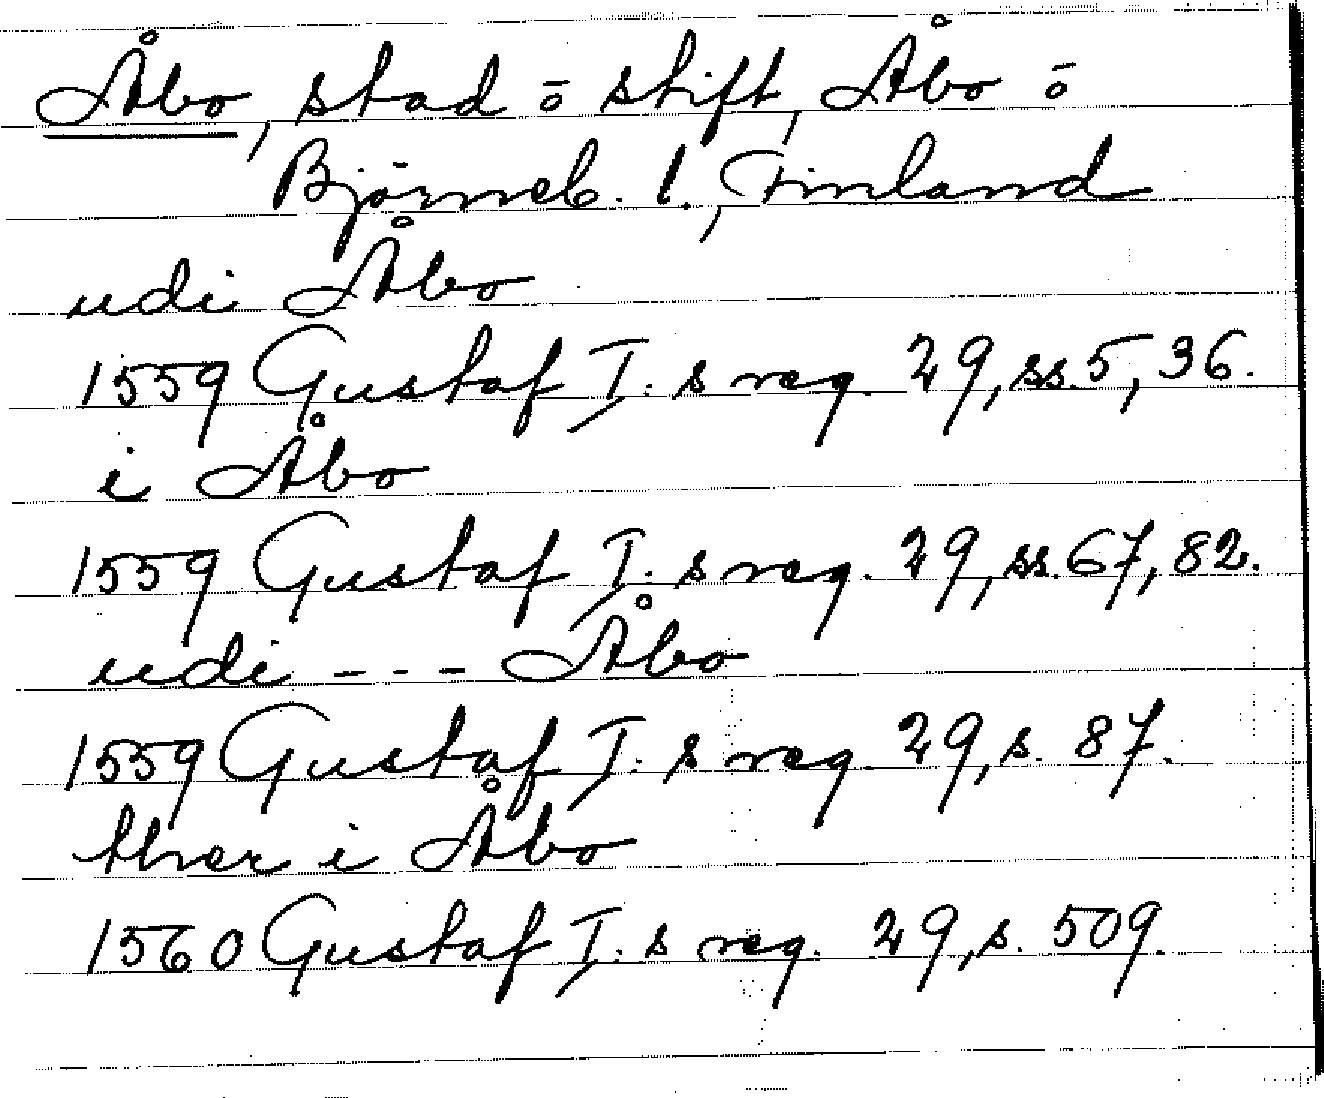 Åbo, stad ō stift, Åbo ō
Björneb. l., Finland
udi Åbo
1559 Gustaf I:s reg. 29, ss. 5, 36.
i Åbo
1559 Gustaf I:s reg. 29, ss. 67, 82.
udi - - - Åbo
1559 Gustaf I:s reg. 29, s. 87.
ther i Åbo
1560 Gustaf I:s reg. 29, s. 509.